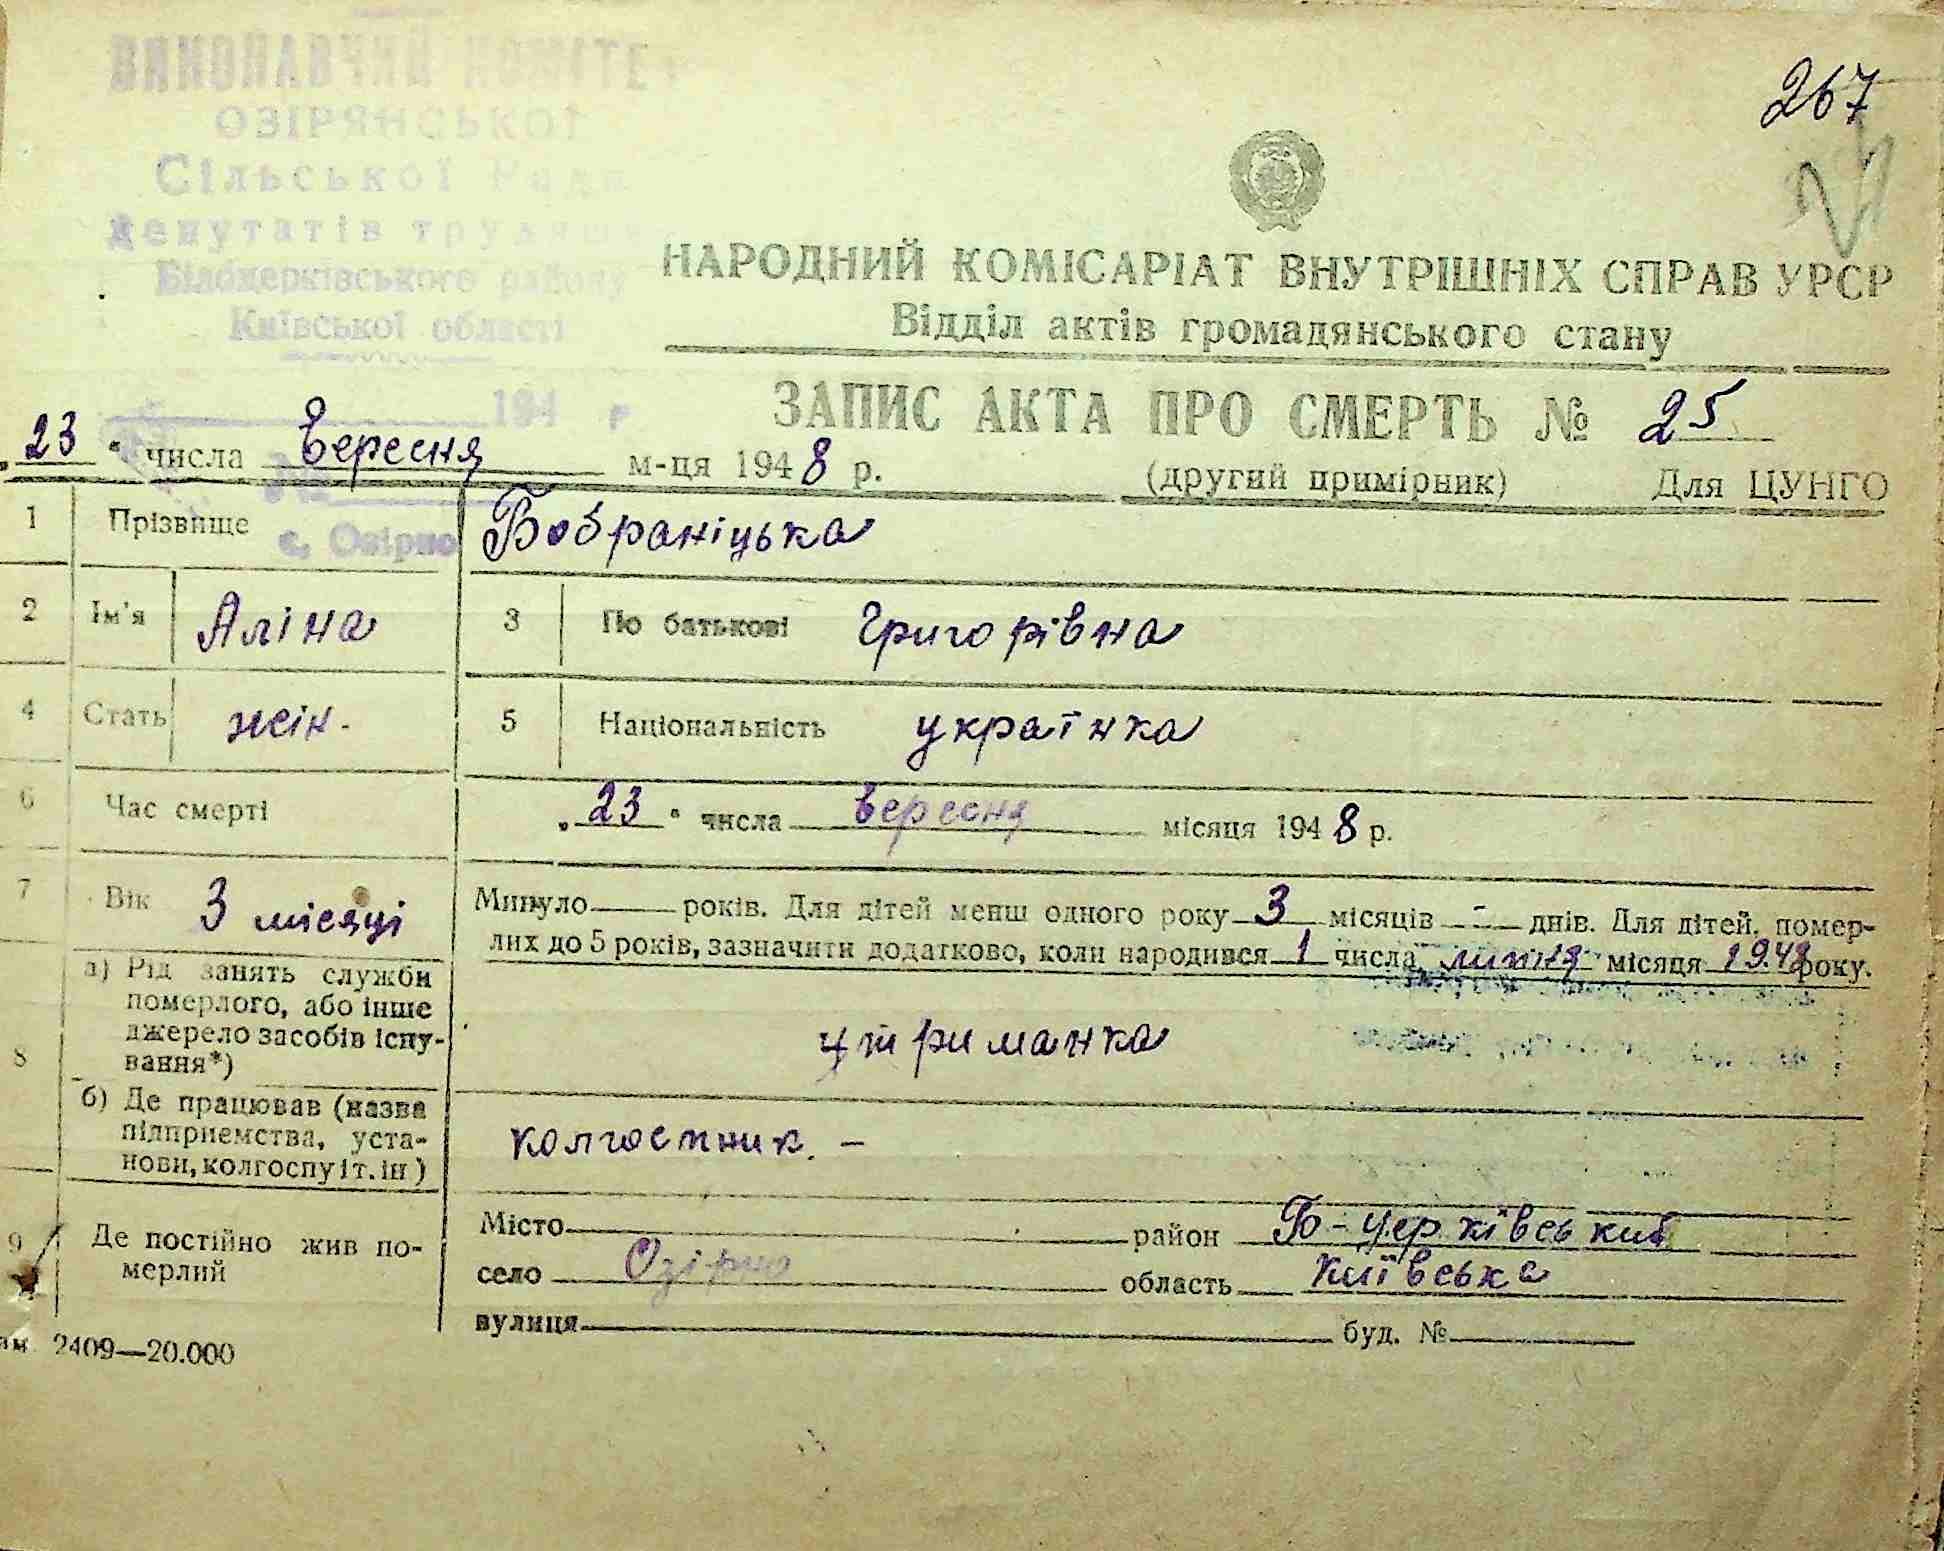 267
ВИКОНАВЧИЙ КОМІТЕ
ОЗІРЯНСЬКОЇ
Сільської Ради
депутатів трудящ
Білоцерківського району
Київської області
194 р
с. Озірно
НАРОДНИЙ КОМІСАРІАТ ВНУТРІШНІХ СПРАВ УРСР
Відділ актів громадянського стану
ЗАПИС АКТА ПРО СМЕРТЬ № 25
„23“ числа вересня м-ця 1948 р.
(другий примірник) Для ЦУНГО
1 Прізвище Бобраніцька
2 Ім'я Аліна 3 По батькові Григорівна
4 Стать жін. 5 Національність українка
6 Час смерті „23“ числа вересня місяця 1948 р.
7 Вік 3 місяці Минуло — років. Для дітей менш одного року 3 місяців - днів. Для дітей, помер-
лих до 5 років, зазначити додатково, коли народився 1 числа липня місяця 1948 року.
8 а) Рід занять служби
померлого, або інше
джерело засобів існу-
вання*)
утриманка
б) Де працював (назва
підприємства, уста-
нови, колгоспу і т. ін)
колгоспник. –
9 Де постійно жив по-
мерлий
Місто район Б-Церківський
село Озірно область Київська
вулиця буд. №
ам 2409—20.000